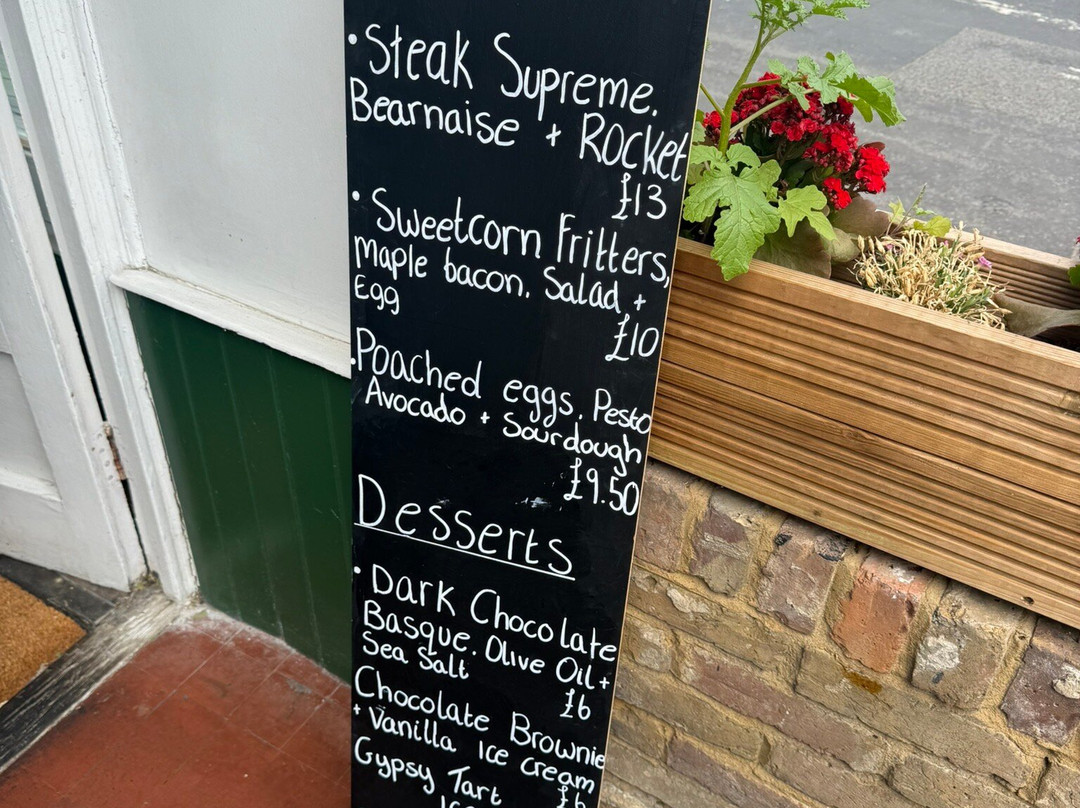 • Steak Supreme.
Bearnaise + Rocket
£13
• Sweetcorn Fritters,
Maple bacon. Salad +
Egg
£10
• Poached eggs. Pesto
Avocado + Sourdough
£9.50
Desserts
• Dark Chocolate
Basque. Olive Oil +
Sea Salt
£6
Chocolate Brownie
+ Vanilla Ice Cream
£6
Gypsy Tart